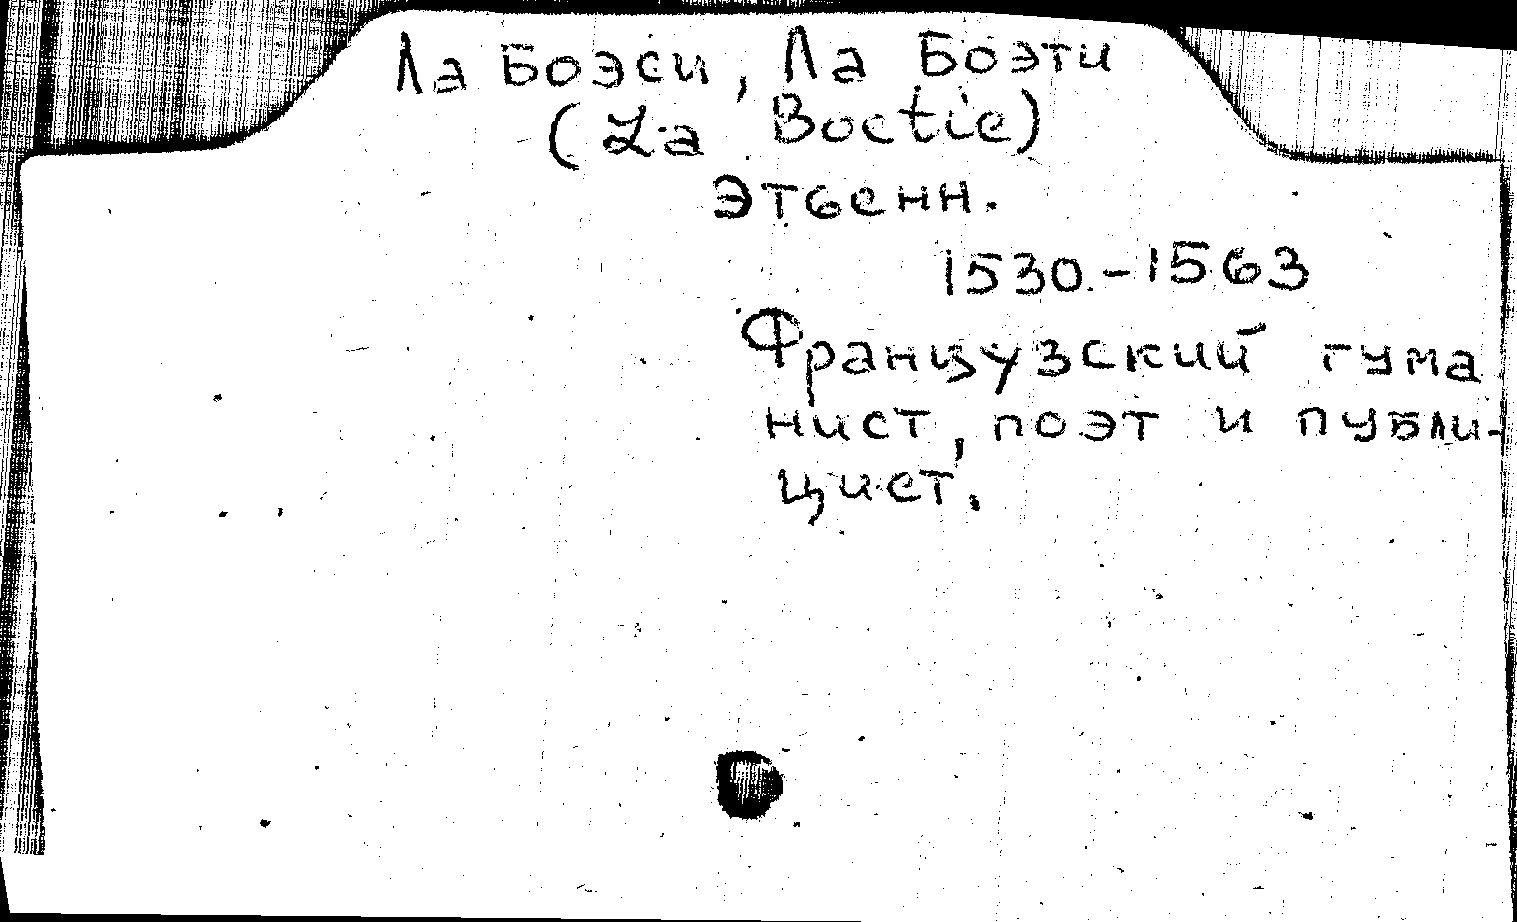 Ла Боэси, Ла Боэти
(La Boetie)
Этьенн.
1530.-1563
Французский гума
нист, поэт и публи-
цист.